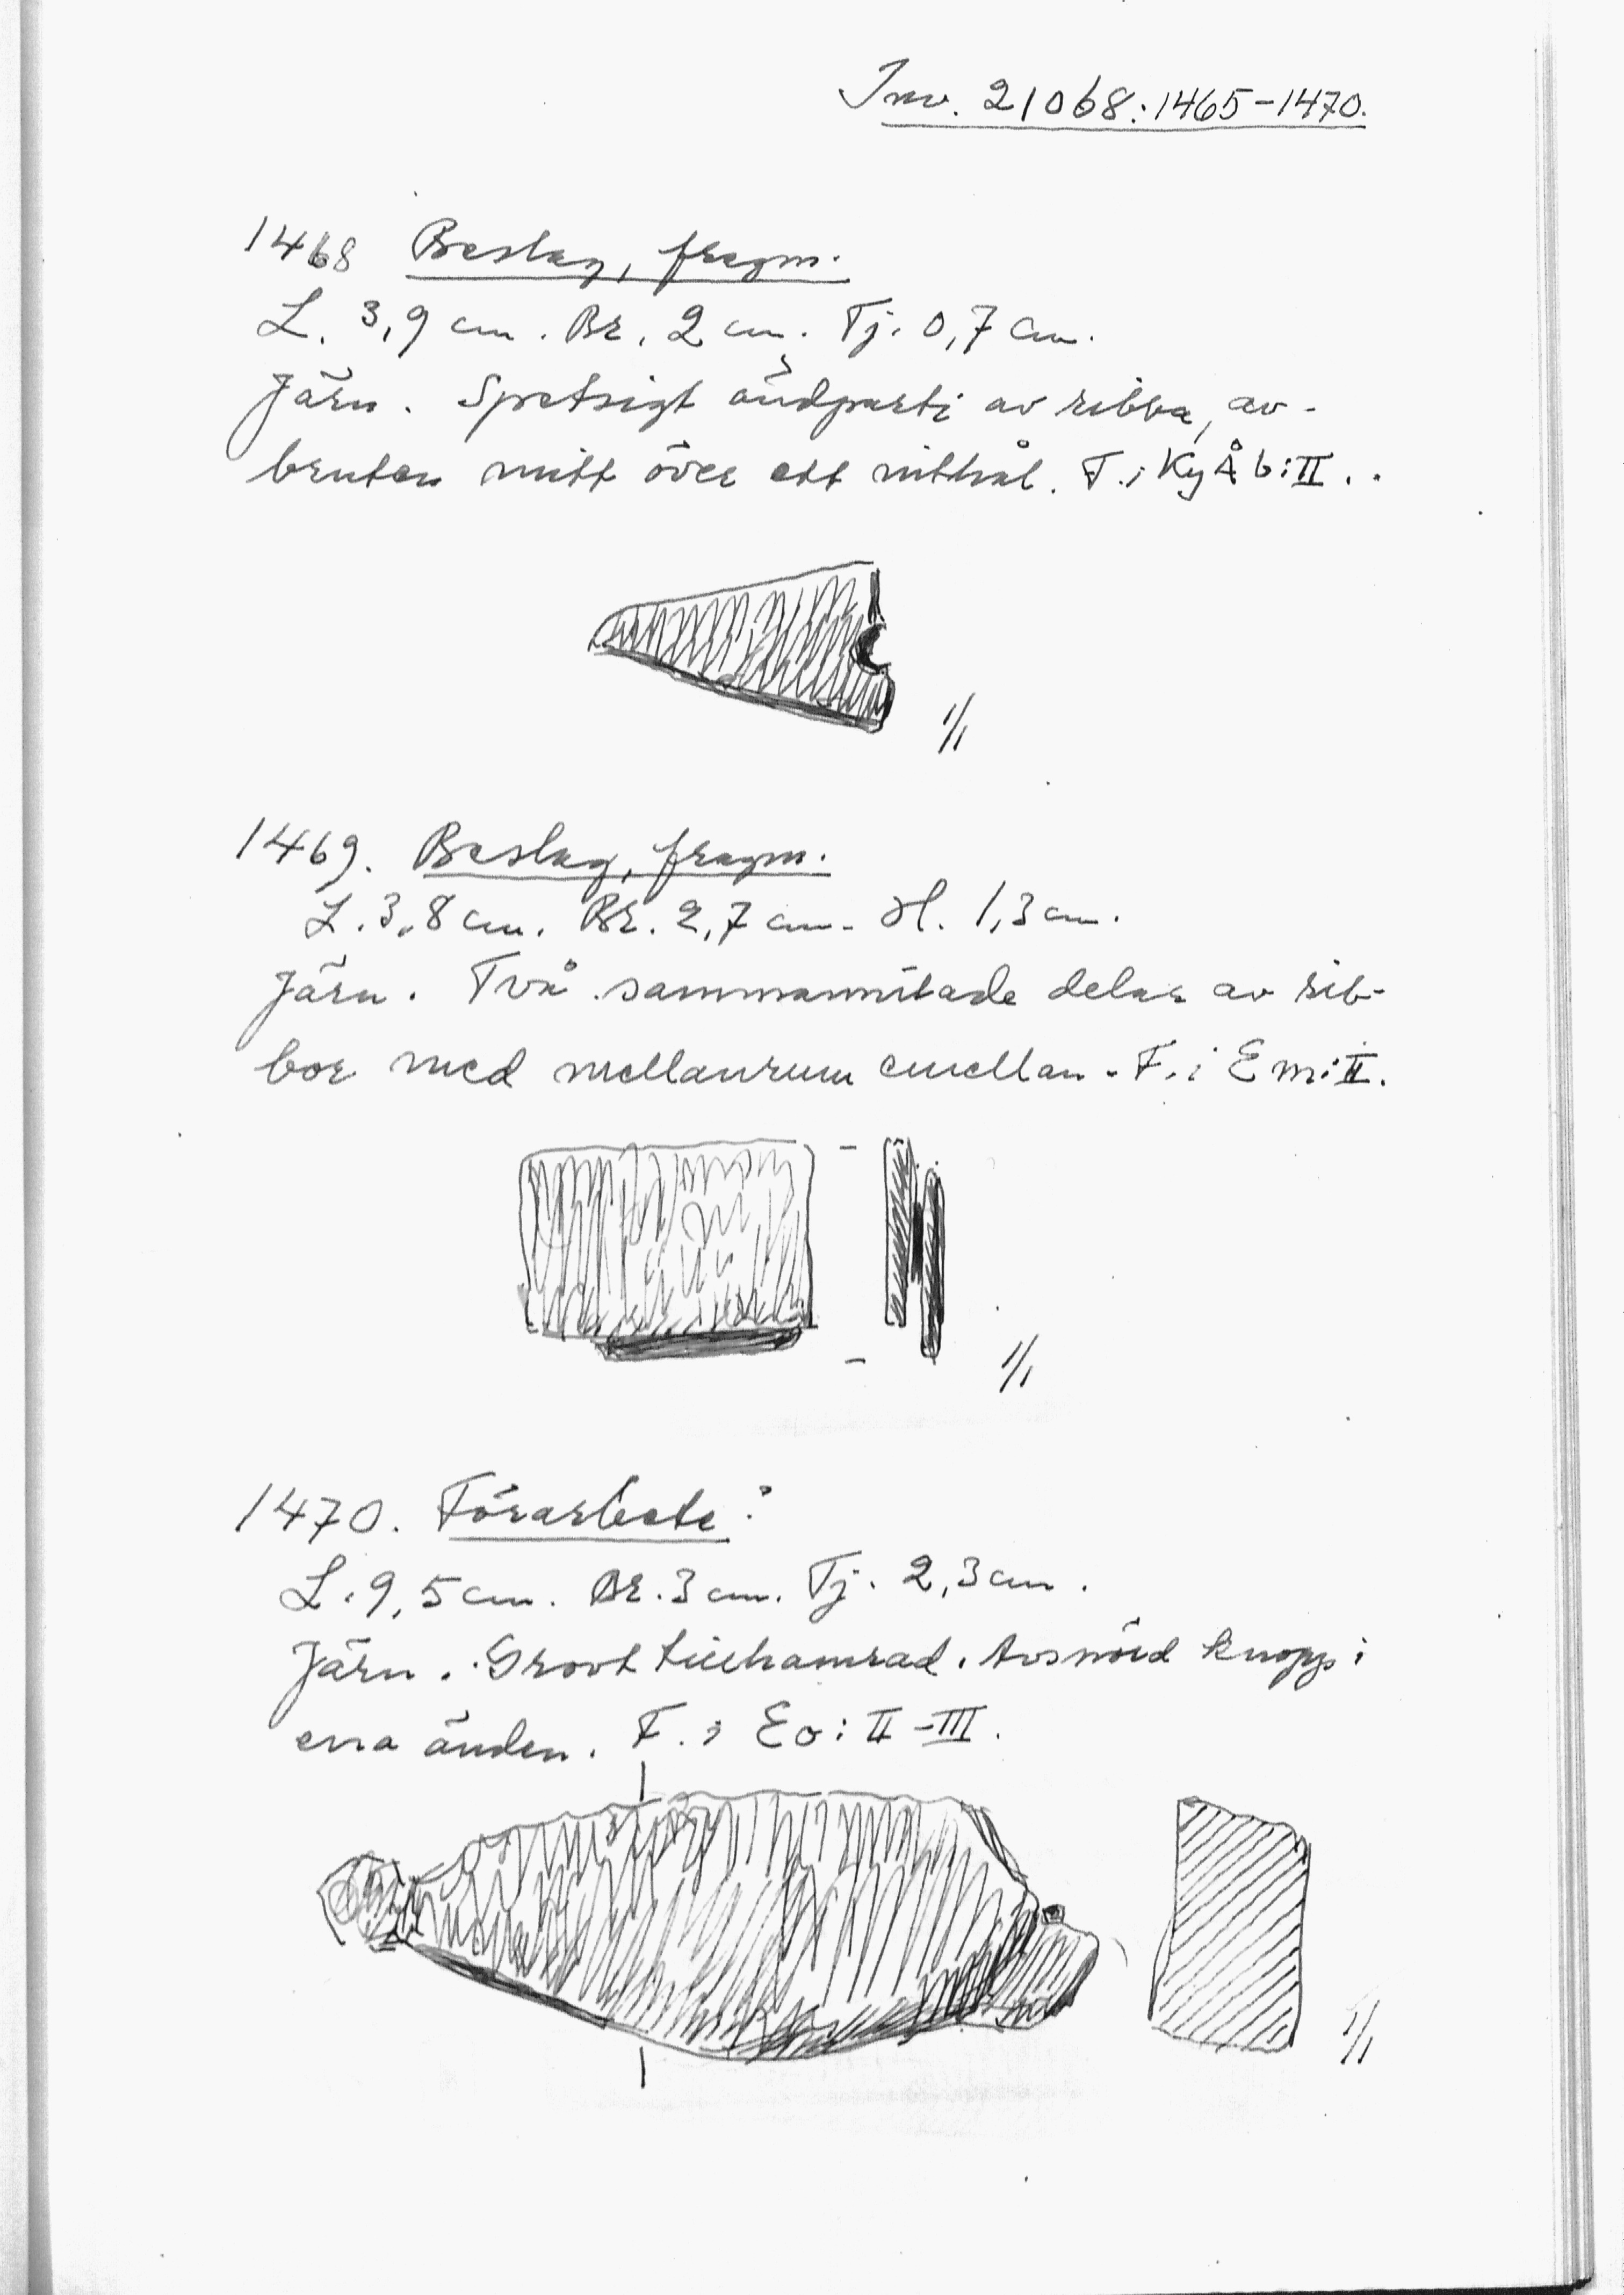 Inv. 21068:1465-1470.
1468 Beslag, fragm.
L. 3,9 cm. Br. 2 cm. Tj. 0,7 cm.
Järn. Spetsigt ändparti av ribba, av-
bruten mitt över ett nithål. F. i Ky Å b:II..
1/1
1469. Beslag, fragm.
L. 3,8 cm. Br. 2,7 cm. H. 1,3 cm.
Järn. Två sammannitade delar av rib-
bor med mellanrum emellan. F. i E m:II.
1/1
1470. Förarbete?
L. 9,5 cm. Br. 3 cm. Tj. 2,3 cm.
Järn. Grovt tillhamrad. Avsnörd knopp i
ena änden. F. i E o: II-III.
1/1